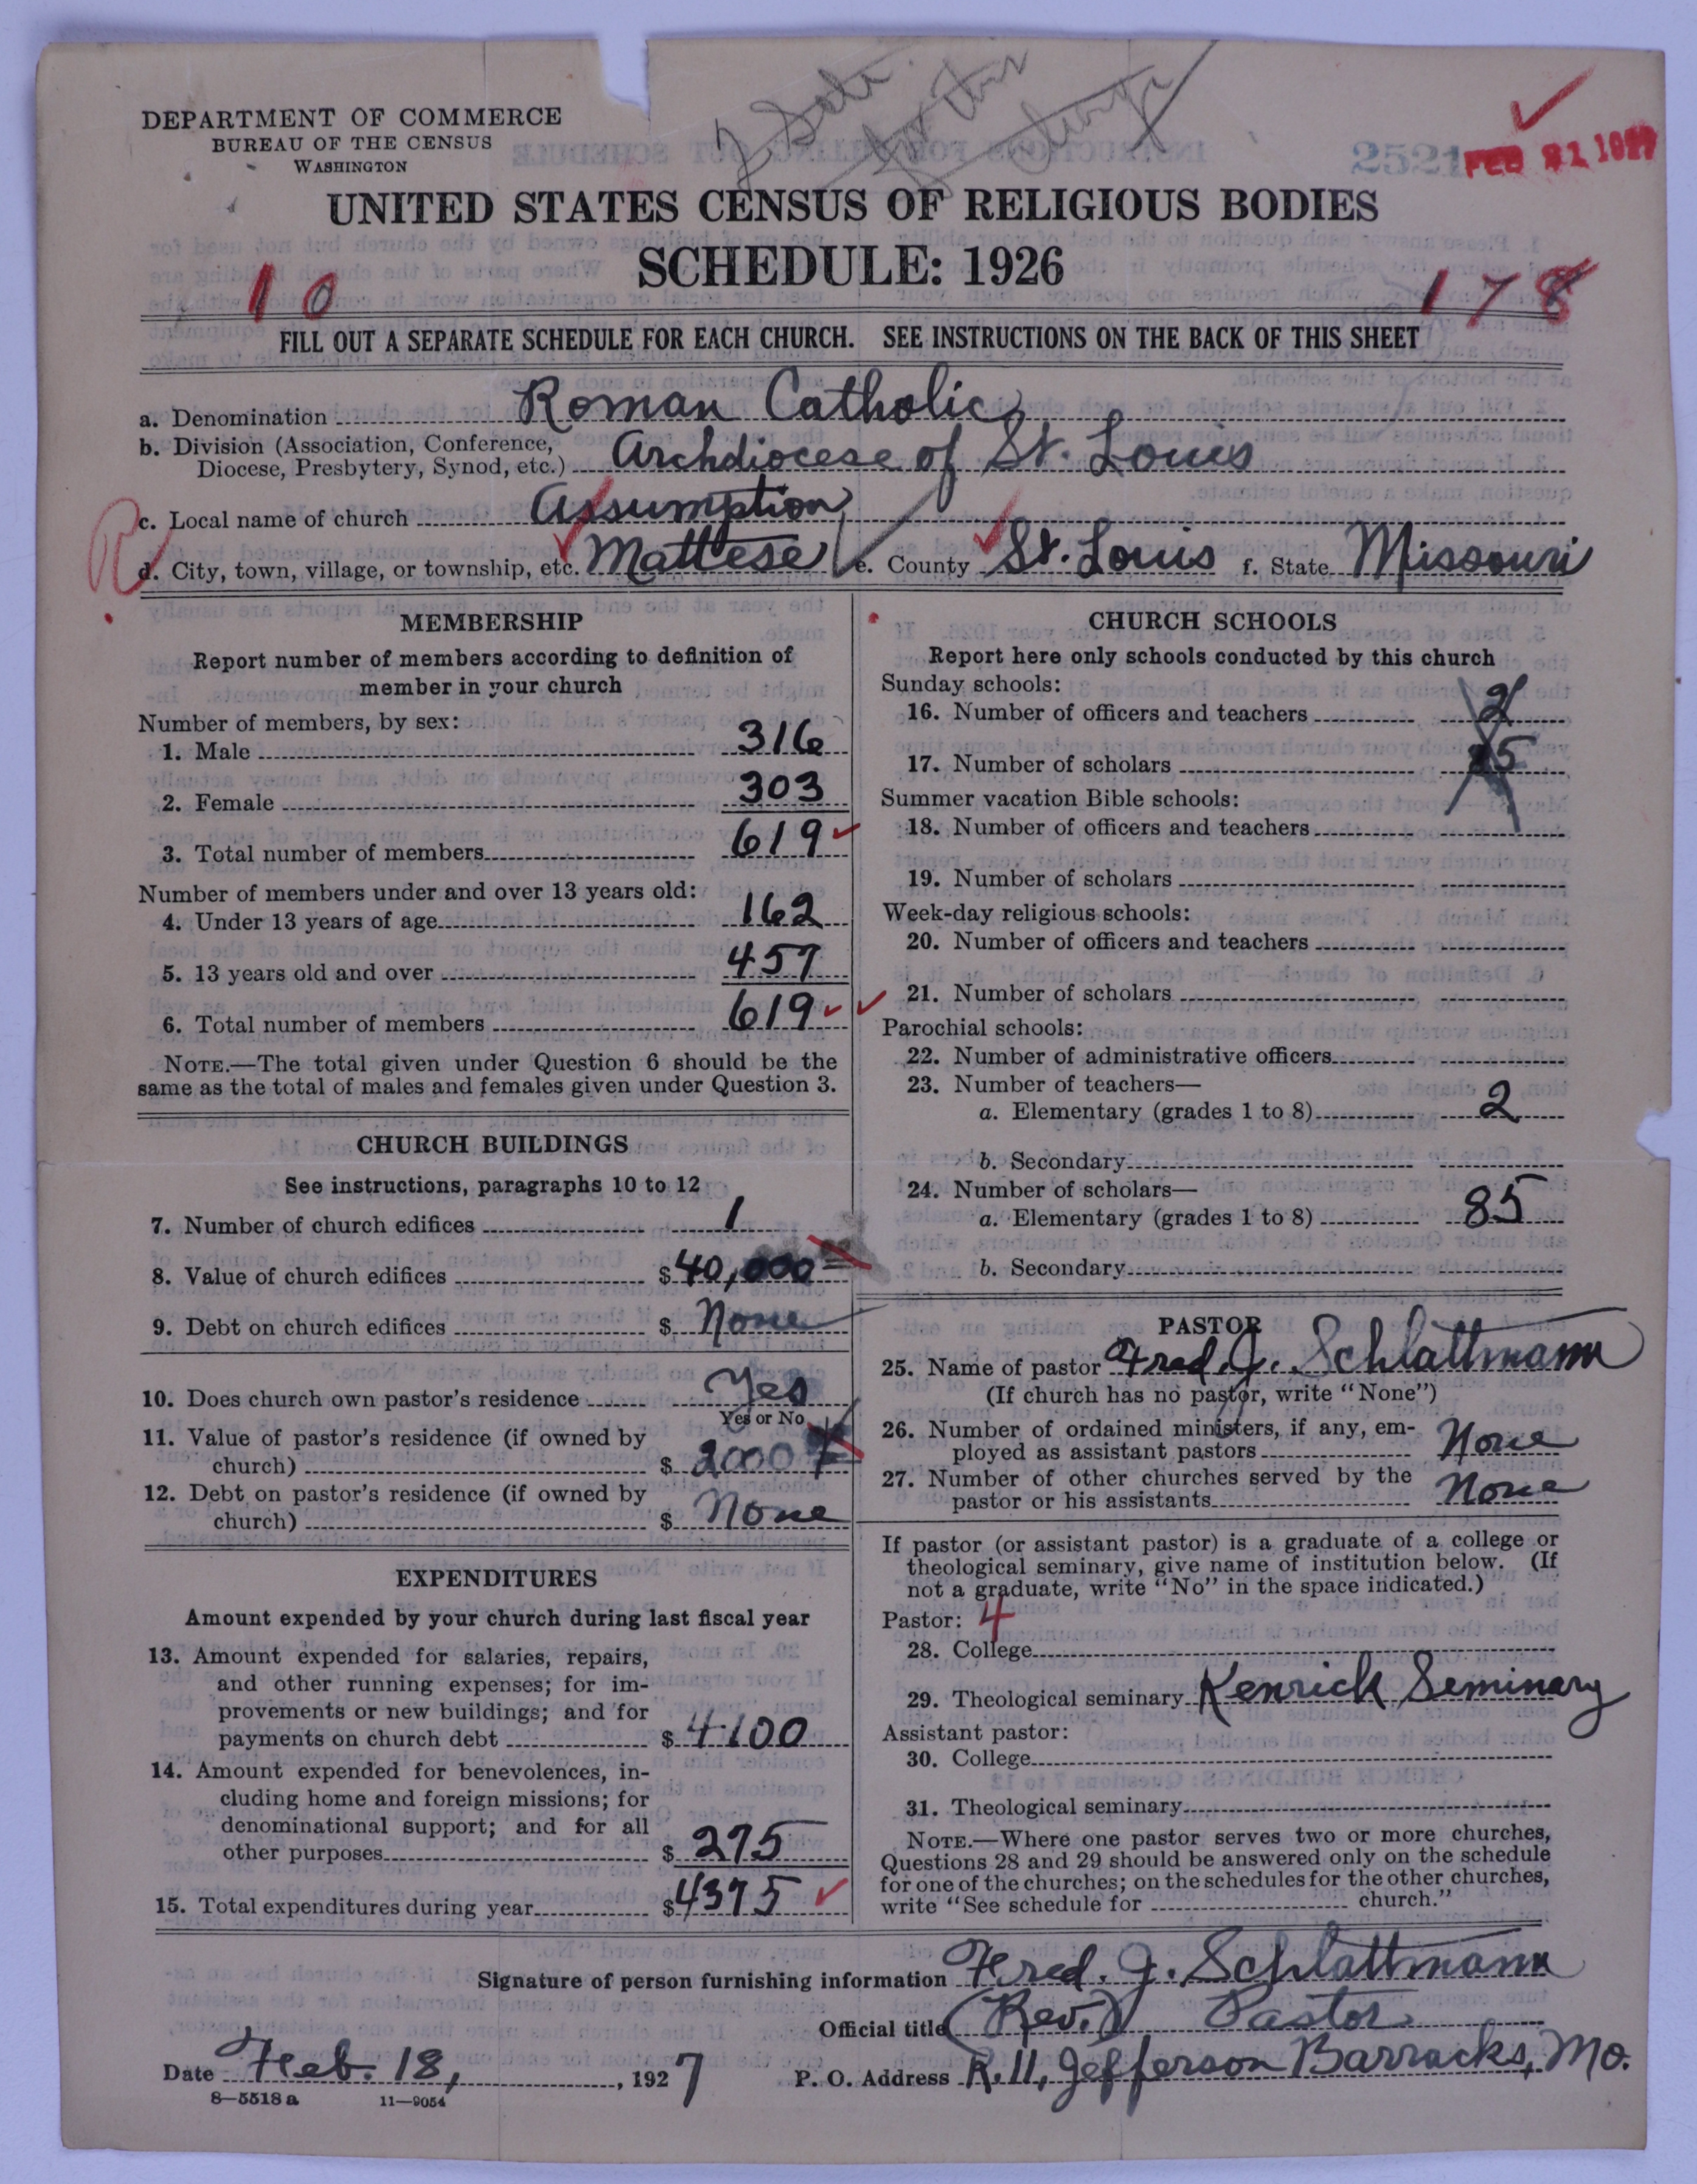 DEPARTMENT OF COMMERCE
BUREAU OF THE CENSUS
WASHINGTON
2521 FEB 21 1927
UNITED STATES CENSUS OF RELIGIOUS BODIES
SCHEDULE: 1926
10 178
FILL OUT A SEPARATE SCHEDULE FOR EACH CHURCH. SEE INSTRUCTIONS ON THE BACK OF THIS SHEET
a. Denomination Roman Catholic
b. Division (Association, Conference,
Diocese, Presbytery, Synod, etc.) Archdiocese of St. Louis
c. Local name of church Assumption
R
d. City, town, village, or township, etc. Mattese e. County St. Louis f. State Missouri
MEMBERSHIP
Report number of members according to definition of
member in your church
Number of members, by sex:
1. Male 316
2. Female 303
3. Total number of members 619
Number of members under and over 13 years old:
4. Under 13 years of age 162
5. 13 years old and over 457
6. Total number of members 619
NOTE.—The total given under Question 6 should be the
same as the total of males and females given under Question 3.
CHURCH BUILDINGS
See instructions, paragraphs 10 to 12
7. Number of church edifices 1
8. Value of church edifices $ 40,000
9. Debt on church edifices $ None
10. Does church own pastor's residence Yes
Yes or No
11. Value of pastor's residence (if owned by
church) $ 2000
12. Debt on pastor's residence (if owned by
church) $ None
EXPENDITURES
Amount expended by your church during last fiscal year
13. Amount expended for salaries, repairs,
and other running expenses; for im-
provements or new buildings; and for
payments on church debt $ 4100
14. Amount expended for benevolences, in-
cluding home and foreign missions; for
denominational support; and for all
other purposes $ 275
15. Total expenditures during year $ 4375
CHURCH SCHOOLS
Report here only schools conducted by this church
Sunday schools:
16. Number of officers and teachers 2
17. Number of scholars 85
Summer vacation Bible schools:
18. Number of officers and teachers
19. Number of scholars
Week-day religious schools:
20. Number of officers and teachers
21. Number of scholars
Parochial schools:
22. Number of administrative officers
23. Number of teachers—
a. Elementary (grades 1 to 8) 2
b. Secondary
24. Number of scholars—
a. Elementary (grades 1 to 8) 85
b. Secondary
PASTOR
25. Name of pastor Fred. J. Schlattmann
(If church has no pastor, write "None")
26. Number of ordained ministers, if any, em-
ployed as assistant pastors None
27. Number of other churches served by the
pastor or his assistants None
If pastor (or assistant pastor) is a graduate of a college or
theological seminary, give name of institution below. (If
not a graduate, write "No" in the space indicated.)
Pastor: 4
28. College
29. Theological seminary Kenrick Seminary
Assistant pastor:
30. College
31. Theological seminary
NOTE.—Where one pastor serves two or more churches,
Questions 28 and 29 should be answered only on the schedule
for one of the churches; on the schedules for the other churches,
write "See schedule for church."
Signature of person furnishing information Fred. J. Schlattmann
Official title (Rev.) Pastor
Date Feb. 18, , 1927 P. O. Address R. 11, Jefferson Barracks, Mo.
8—5518 a 11—9054